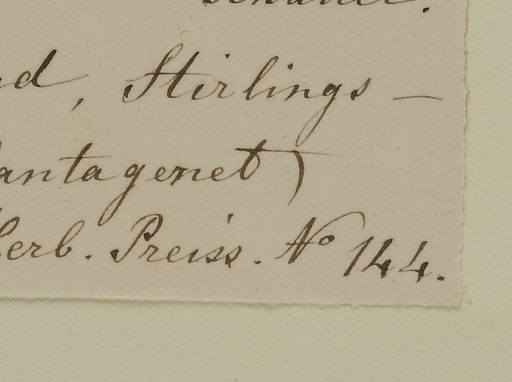 d, Stirlings —
antagenet)
erb. Preiss. No 144.